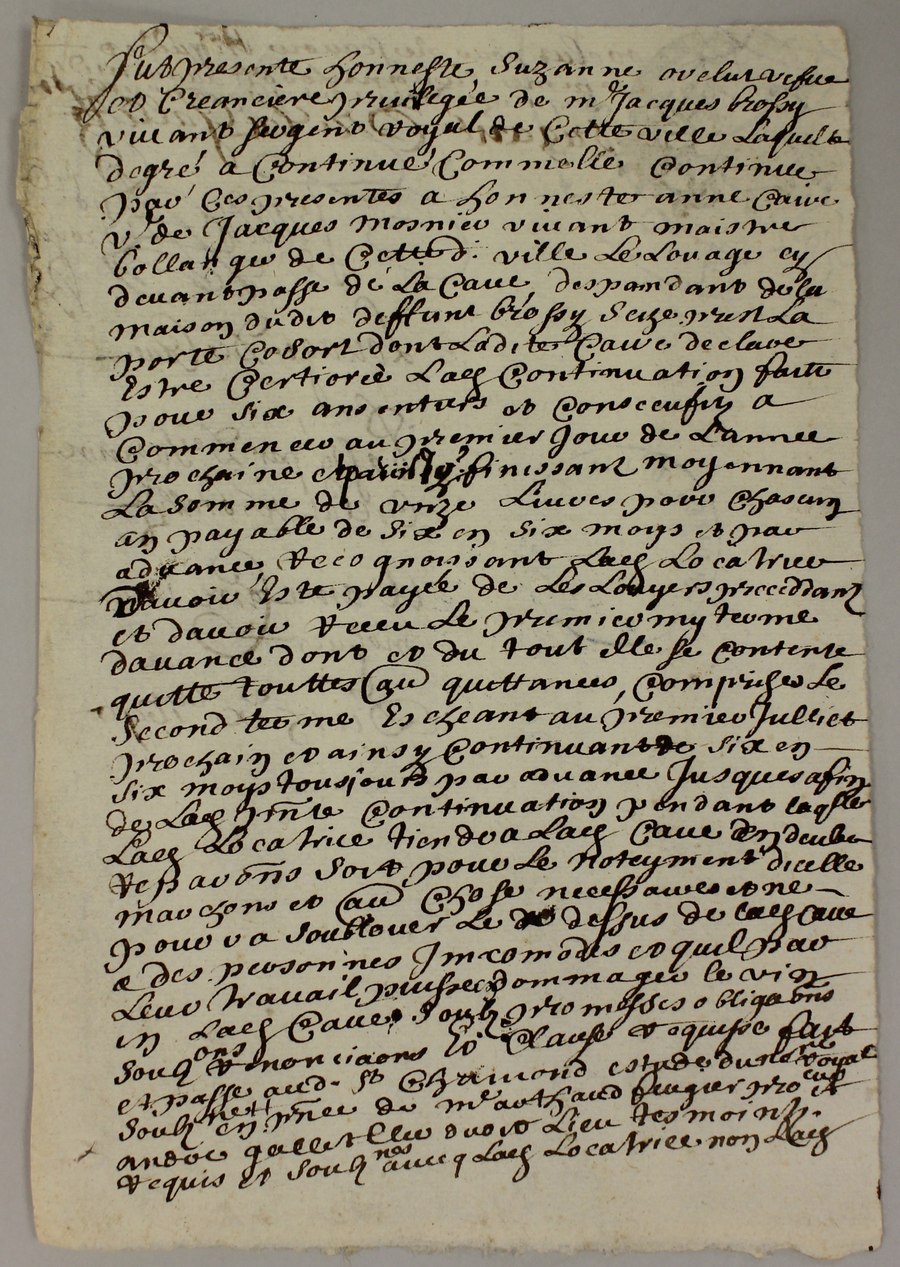 Fut presente honneste Suzanne ovelut vefue
et Creanciere priuilegée de mr Jacques brossy
viuant sergent royal de Cette ville Laquelle
degré a Continué Commelle Continue
par Ces presentes a honneste anne Caire
vve de Jacques mosnier viuant maistre
bollanger de Cetted. ville Le Louage cy
deuant passé de La Caue despandant de la
maison dudit deffunt brossy La
porte dont Ladite Caire declare
Estre Certioreé Lad Continuation faite
pour six ans entiers et Consecutifz a
Commencer au premier Jour de Lannee
prochaine et finissant moyennant
La somme de unze Liures pour Chascun
an payable de six en six moys et par
aduance Recognoissant Lad Locatrice
dauoir Esté payée de Les Louyers preceddantz
et dauoir Receu Le premier my terme
dauance dont et du tout elle se contente
quitte touttes au quittances, Comprises Le
Second terme Escheant au premier Julliet
prochain et ainsy Continuant de six en
six moys tousjours par aduance Jusques a fin
de Lad pnte Continuation pendant laqlle
Lad Locatrice tiendra Lad Caue
Reparaons soit pour Le noteyment dicelle
marchons et au Chose necessaires et ne
pourra soublouer Le dessus de lad Caue
a des personnes Jncomodes et quil par
Leur trauail puisse dommager le vin
en Lad Caue, Soubz promesses obligaons
Soubzons Renonciaons Et Clause Requise fait
et passé aud. St Chamond estude du nore royal
Soubzne en pnce de me arthaud prociur et
andre gallet Clerc dudit Lieu tesmoinz
Requis et Soubznes auecq Lad Locatrice non Lad